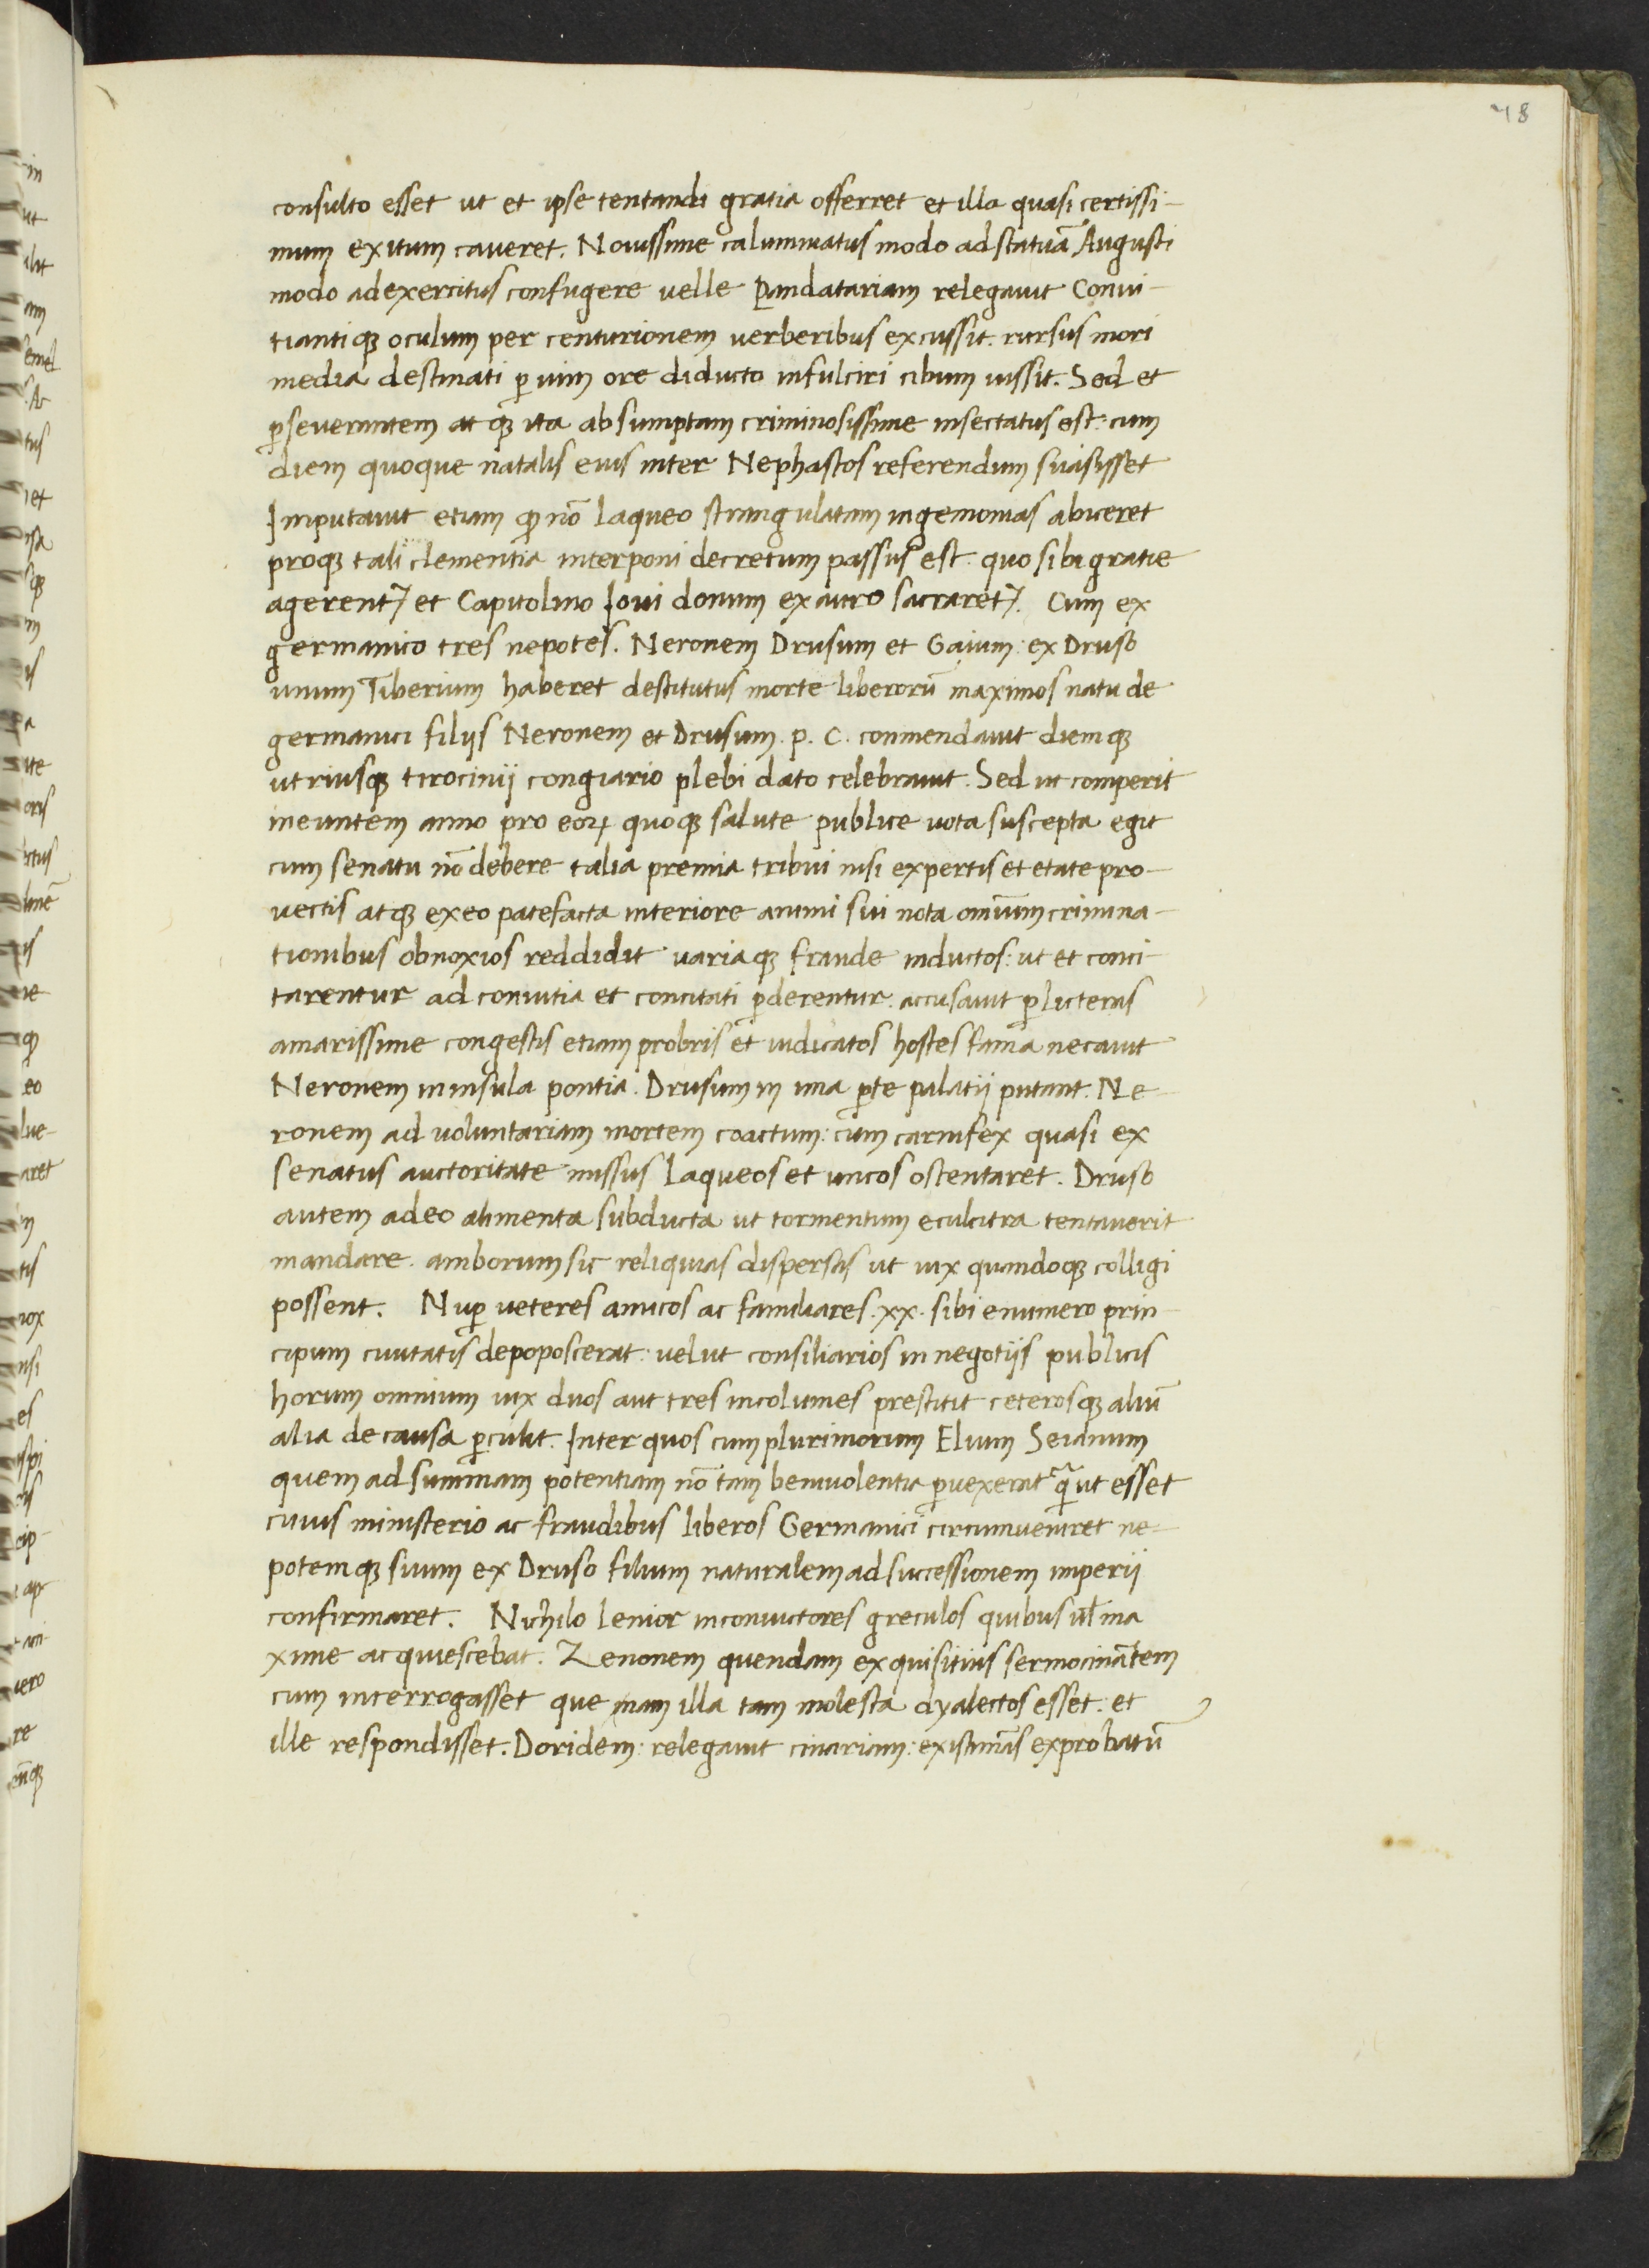 48
consulto esset ut et ipse tentandi gratia offerret et illa quasi certissi-
mum exitum caveret. Novissime calumniatus modo ad statuā Augusti
modo ad exercitus confugere velle Pandatariam relegavit Convi-
tiantiqꝫ oculum per centurionem verberibus excussit. rursus mori
media destinati ꝑ vim ore diducto infulciri cibum iussit. Sed et
ꝑseverantem atqꝫ ita absumptam criminosissime insectatus est: cum
diem quoque natalis eius inter Nephastos referendum suasisset
Imputavit etiam ꝙ nō laqueo strangulatam in gemonias abiceret
proqꝫ tali clementia interponi decretum passus est: quo sibi gratie
agerentꝰ et Capitolino Iovi donum ex auro sacraretꝰ. Cum ex
germanico tres nepotes. Neronem Drusum et Gaium: ex Druso
unum Tiberium haberet destitutus morte liberorū maximos natu de
germanici filijs Neronem et Drusum. p. c. conmendavit diemqꝫ
utriusqꝫ tirocinij congiario plebi dato celebravit. Sed ut comperit
ineuntem anno pro eoꝝ quoqꝫ salute publice vota suscepta egit
cum senatu nō debere talia premia tribui nisi expertis et etate pro-
vectis atqꝫ ex eo patefacta interiore animi sui nota omīum crimina-
tionibus obnoxios reddidit variaqꝫ fraude inductos: ut et conci-
tarentur ad convitia et concitati ꝑderentur. accusavit ꝑ licteras
amarissime congestis etiam probris et iudicatos hostes fama necavit
Neronem in insula pontia. Drusum in ima ꝑte palatij putant. Ne-
ronem ad voluntariam mortem coactum: cum carnifex quasi ex
senatus auctoritate missus laqueos et uncos ostentaret. Druso
autem adeo alimenta subducta ut tormentum e culcitra tentaverit
mandare. amborum sic reliquias dispersas ut vix quandoqꝫ colligi
possent. Nuꝑ veteres amicos ac familiares .xx. sibi e numero prin-
cipum civitatis depoposcerat: velut consiliarios in negotijs publicis
horum omnium vix duos aut tres incolumes prestitit ceterosqꝫ aliū
alia de causa ꝑculit. Inter quos cum plurimorum Elium Seianum
quem ad summam potentiam nō tam benivolentia ꝓvexerat q̄ ut esset
cuius ministerio ac fraudibus liberos Germanici circumveniret ne-
potemqꝫ suum ex Druso filium naturalem ad successionem imperij
confirmaret. Nichilo lenior in convictores greculos quibus vl ma
xime acquiescebat. Zenonem quendam exquisitius sermocinātem
cum interrogasset que nam illa tam molesta dyalectos esset: et
ille respondisset. Doridem: relegavit cinariam: existimās exprobatū